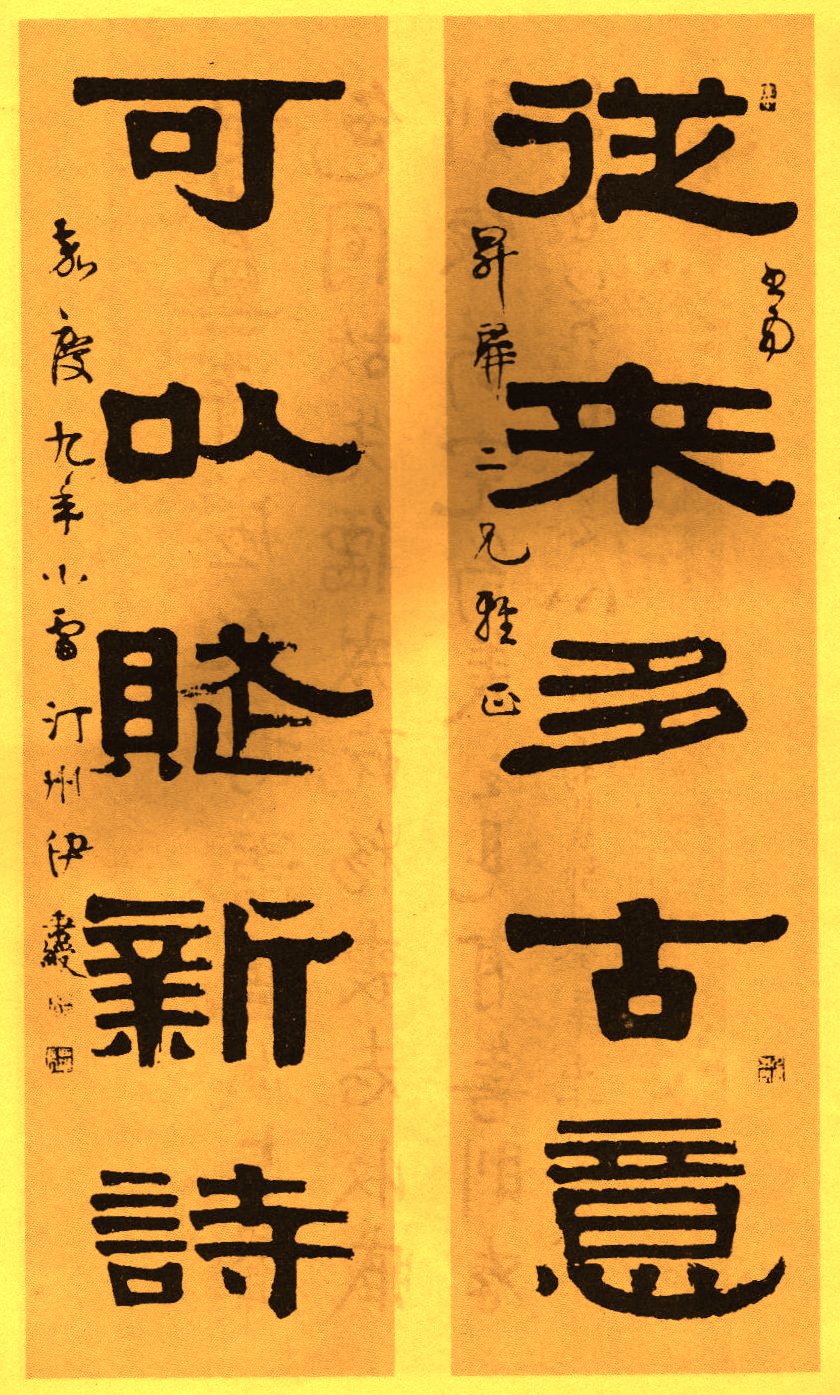 書南
從来多古意
昇屏二兄雅正
可以賦新詩
嘉慶九年小雪汀州伊